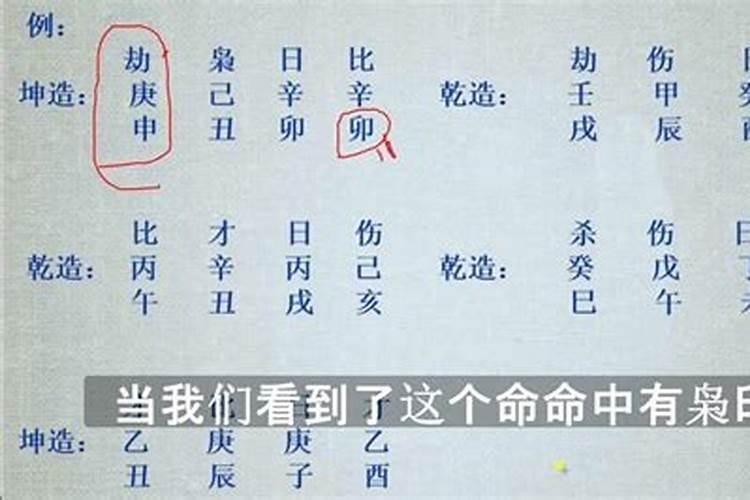 例：
劫 枭 日 比 劫 伤
坤造： 庚 己 辛 辛 乾造： 壬 甲
申 丑 卯 卯 戌 辰
比 才 日 伤 杀 伤
乾造： 丙 辛 丙 己 乾造： 癸 戊
午 丑 戌 亥 巳 午
当我们看到了这个命命中有枭
坤造： 乙 庚 庚 乙
丑 辰 子 酉